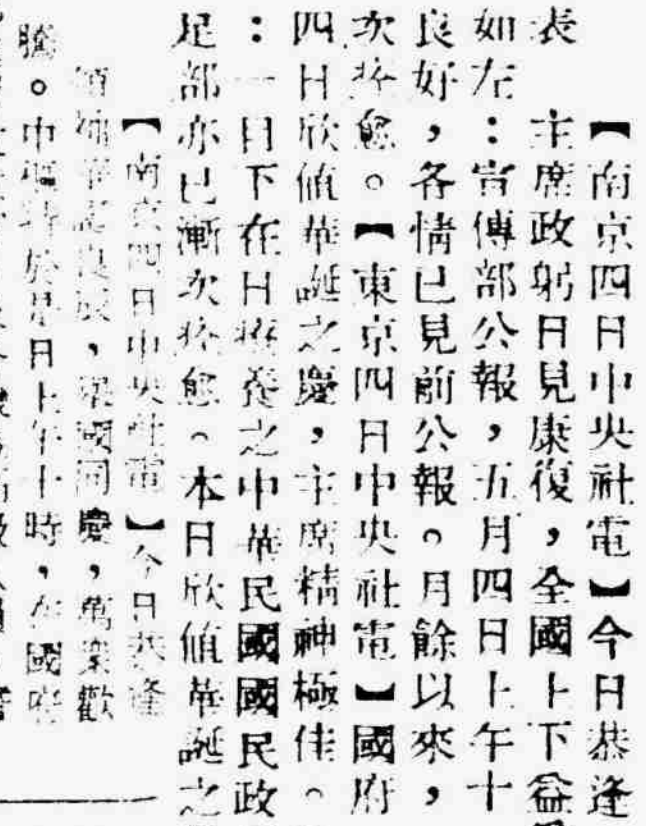 【南京四日中央社電】今日恭逢
表 主席政躬日見康復,全國上下益
如左:宣傳部公報,五月四日上午十
良好,各情已見前公報。月餘以來,
次痊愈。【東京四日中央社電】國府
四日欣值華誕之慶,主席精神極佳。
:一目下在日療養之中華民國國民政
足部亦已漸次痊愈。本日欣值華誕之
【南京四日中央社電】今日恭逢
領袖華誕良辰,舉國同慶,萬衆歡
騰。中樞特於是日上午十時,在國府